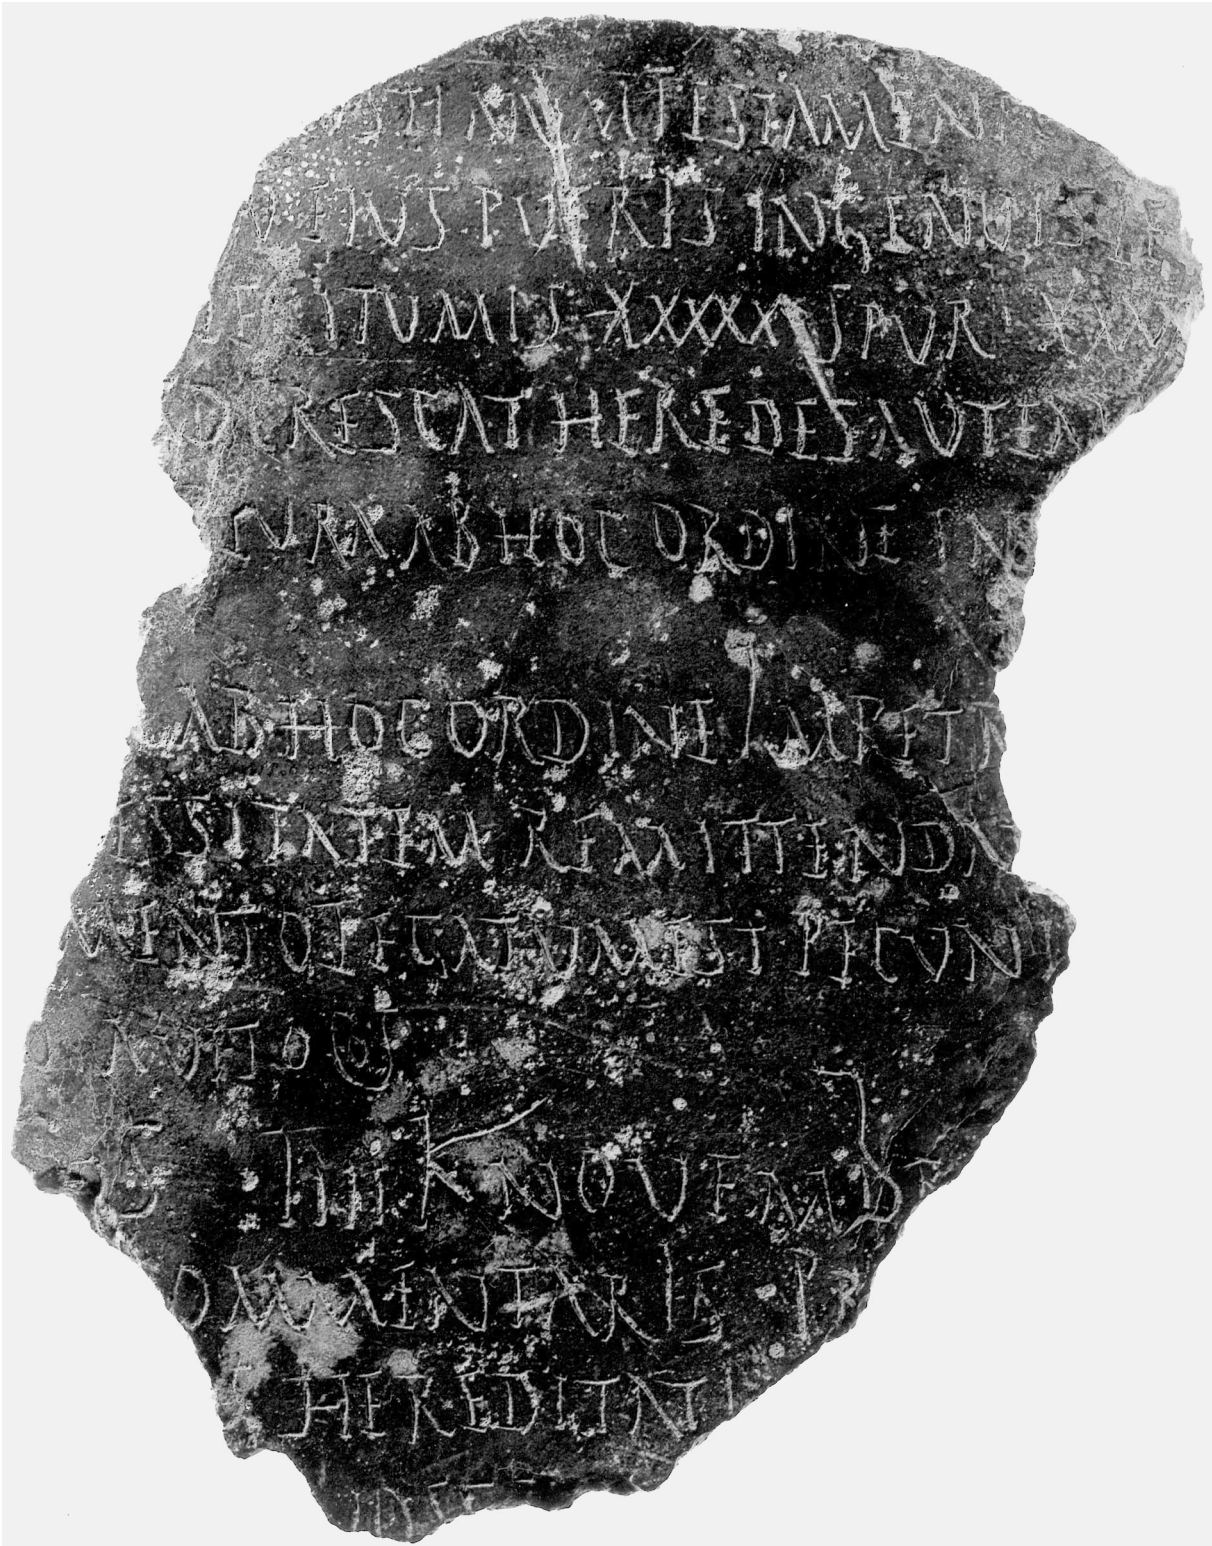 USTINUM TESTAMENT
VENUS PUERIS INGENUIS
LEGITUMIS XXXXX SPURI XXX
DECRESCAT HEREDES AUTEM
CURAM AB HOC ORDINE IND
AB HOC ORDINE IMPETR
ESSITATEM REMITTENDA
MENTO LEGATUM EST PECUNI
AUITO
S IIII K NOUEMBR
OMMENTARIE PR
HEREDITATI